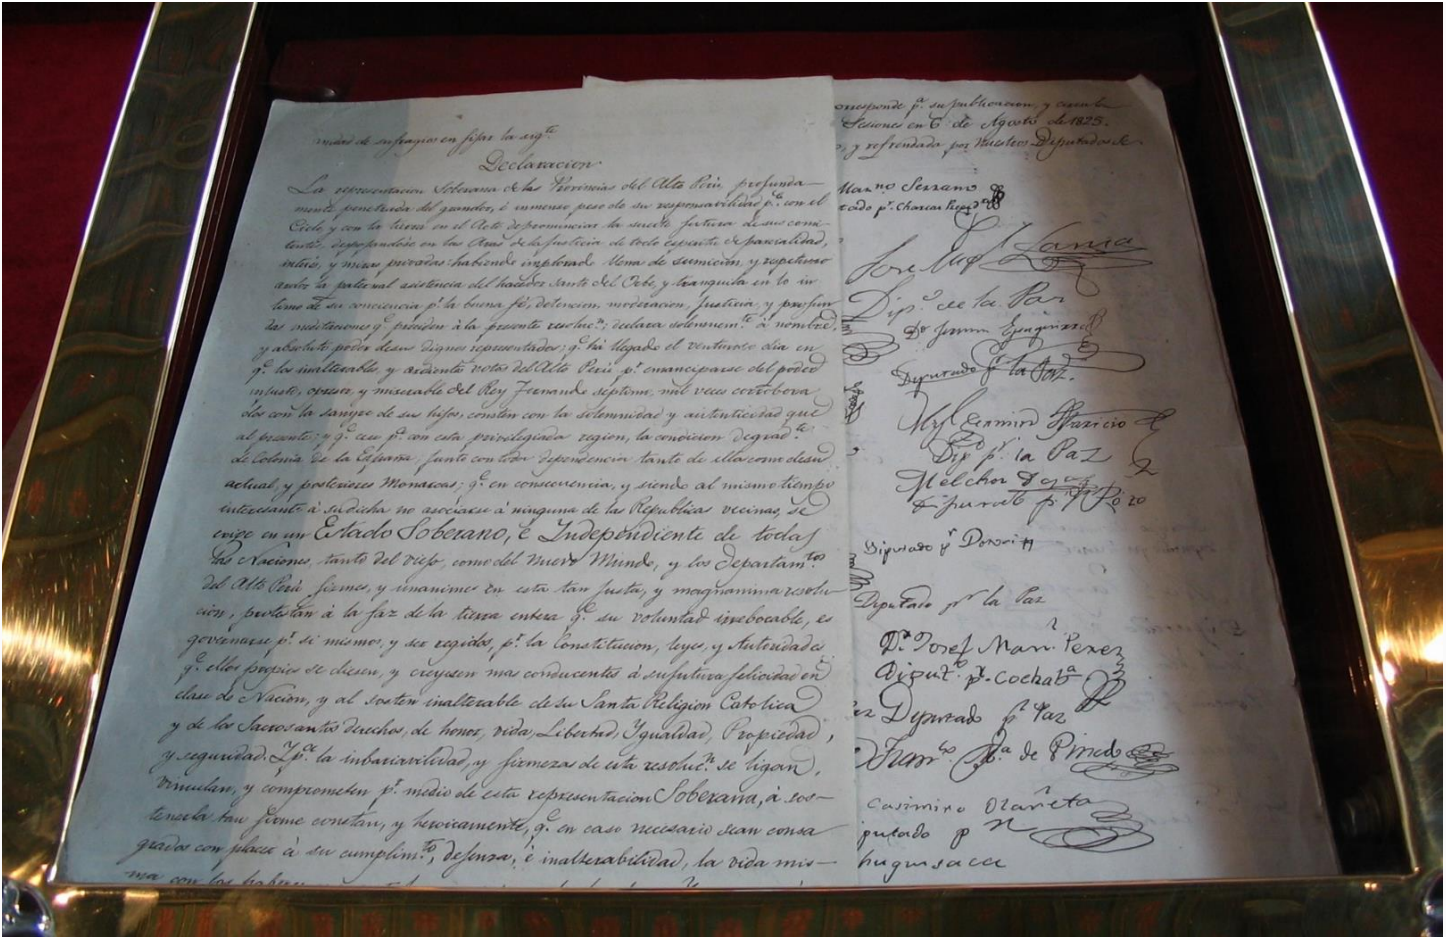 nidad de sufragios en fijar la sigte.
Declaracion
La representacion Soberana de las Provincias del Alto Perú, profunda-
mente penetrada del grandor, é inmenso peso de su responsabilidad pa. con el
Cielo, y con la tierra en el Acto de pronunciar la suerte futura de sus comi
tentes, despojandose en las Aras de la Justicia de todo espiritu de parcialidad,
interés, y miras privadas: habiendo implorado llena de sumicion, y respetuoso
ardor la paternal asistencia del hacedor Santo del Orbe, y tranquila en lo in
timo de su conciencia pr. la buena fé, detencion, moderacion, Justicia, y profun
das meditaciones qe. presiden á la presente resolucn., declara solemnemte. á nombre,
y absoluto poder de sus dignos representados: qe. há llegado el venturoso dia en
qe. los inalterables, y ardientes votos del Alto Perú pr. emanciparse del poder
injusto, opresor, y miserable del Rey Fernando septimo, mil veces corrobora
dos con la sangre de sus hijos, consten con la solemnidad y autenticidad que
al presente, y qe. cese pa. con esta privilegiada region, la condicion degradte.
de Colonia de la España, junto con toda dependencia tanto de ella como de su
actual, y posteriores Monarcas: qe. en consecuencia, y siendo al mismo tiempo
interesante á su dicha no asociarse á ninguna de las Republicas vecinas, se
erige en un Estado Soberano, é Independiente de todas
las Naciones, tanto del viejo, como del nuevo Mundo, y los Departamtos
del Alto Perú firmes, y unanimes en esta tan Justa, y magnanima resolu-
cion, protestan á la faz de la tierra entera qe. su voluntad irrebocable, es
governarse pr. si mismos, y ser regidos, pr. la Constitucion, leyes, y Autoridades
qe. ellos propios se diesen, y creyesen mas conducentes á su futura felicidad en
clase de Nacion, y al sosten inalterable de su Santa Religion Catolica
y de los Sacrosantos derechos, de honor, vida, Libertad, Ygualdad, Propiedad,
y seguridad. Y pa. la inbariavilidad, y firmezas de esta resolucn. se ligan,
vinculan, y comprometen pr. medio de esta representacion Soberana, á sos-
tenerla tan firme constan, y heroicamente, qe. en caso necesario sean consa
grados con placer á su cumplimto, defensa, é inalterabilidad, la vida mis-
ma con los haberes
orresponde pa. su publicacion, y circula
Sesiones en 6 de Agosto de 1825.
, y refrendada por Nuestros Diputados Se
Marno Serrano
tado pr. Charcas
Jose Migl Lanza
Dipo. de la Paz
Dr Eyzaguirre
Deputado pr la Paz.
Fermin Aparicio
Dip pr. la Paz
Melchor
Diputado pr
Diputado pr la Paz
Dr. Josef Man.l Perez
Diput.o pr. Cochaba
Deputado pr Paz
Franco Ma. de Pinedo
Casimiro Olañeta
putado pr
huquisaca